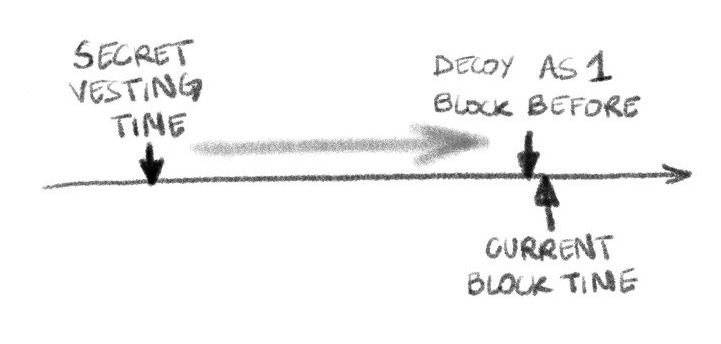 SECRET
VESTING
TIME
DECOY AS 1
BLOCK BEFORE
CURRENT
BLOCK TIME